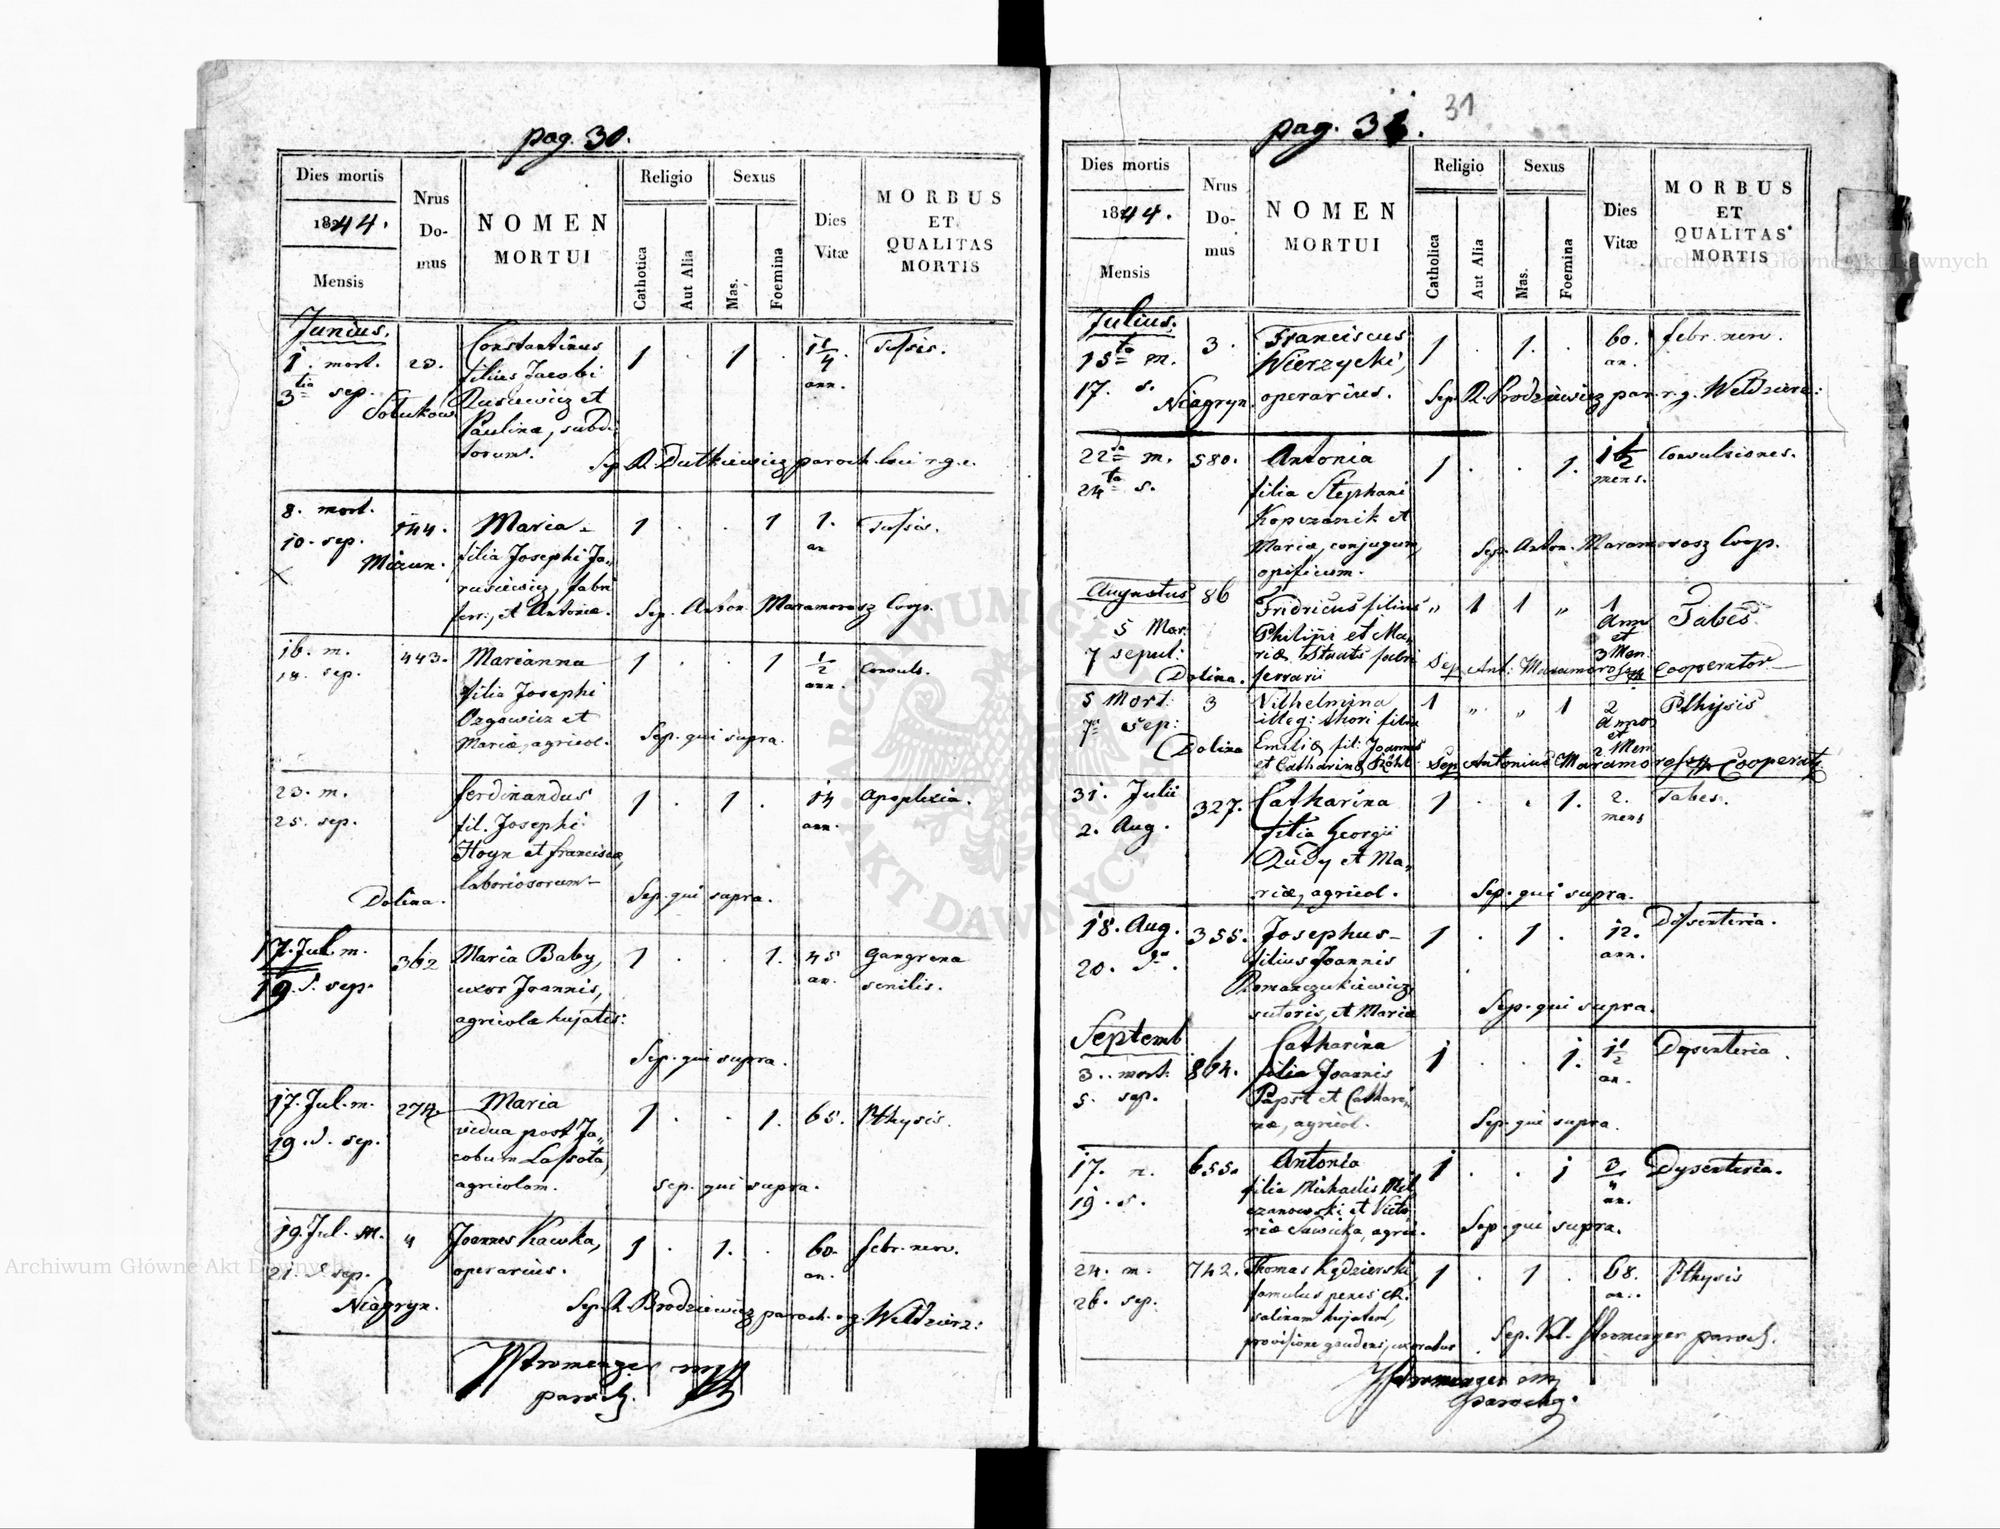 pag. 30.
Dies mortis
1844.
Mensis
Nrus Do- mus
NOMEN
MORTUI
Religio
Catholica
Aut Alia
Sexus
Mas.
Foemina
Dies Vitæ
MORBUS
ET
QUALITAS
MORTIS
Junius.
1. mort. 20. Constantinus 1 . 1 . 1 1/4 Tussis.
3tia sep. filius Jacobi ann.
Solukow Rusiewicz et
Paulinæ, subdi-
torum.
Sep. R. Dutkiewicz paroch. loci r.g.c.
8. mort. 144. Maria 1 . . 1 1. Tussis.
10. sep. filia Josephi Ja- an
Mizun. rusiewicz, fabri
ferr., et Antoniæ. Sep. Anton Maramorosz Coop.
16. m. 443. Marianna 1 . . 1 1/2 Convuls.
18. sep. filia Josephi ann.
Ozgowicz et
Mariæ, agricol. Sep. qui supra.
23. m. Ferdinandus 1 . 1 . 14 Apoplexia.
25. sep. fil. Josephi ann.
Hoyn et Franciscæ,
laboriosorum
Dolina. Sep. qui supra.
17. Jul. m. 362 Maria Baby, 1 . . 1. 45 Gangrena
19. S. sep. uxor Joannis, an. senilis.
agricolæ hujatis.
Sep. qui supra.
17. Jul. m. 274 Maria 1 . . 1. 65. Pthysis.
19. S. sep. vidua post Ja-
cobum Lassota,
agricolam. Sep. qui supra.
19. Jul. m. 4 Joannes Kawka, 1 . 1. . 60. febr. nerv.
21. S sep. operarius. an.
Niagryn. Sep. R. Brodziewicz paroch. r.g. Wełdzirz:
Stromenger mp
paroch.
pag. 31. 31
Dies mortis
1844.
Mensis
Nrus Do- mus
NOMEN
MORTUI
Religio
Catholica
Aut Alia
Sexus
Mas.
Foemina
Dies Vitæ
MORBUS
ET
QUALITAS
MORTIS
Julius.
15ta m. 3. Franciscus 1 . 1. . 60. febr. nerv.
17. s. Wierzycki, an.
Niagryn. operarius. Sep. R. Brodziewicz par. r.g. Wełdzirz:
22da m. 580. Antonia 1 . . 1. 1 1/2 Convulsiones.
24ta s. filia Stephani mens.
Kopczanik et
Mariæ, conjugum,
opificum. Sep. Anton. Maramorosz Coop.
Augustus 86 Fridricus filius " 1 1 " 1 Tabes.
5 Mor: Philipi et Ma- Anni et
7 sepul: riæ Staats fabri 3 Men.
Dolina. ferrarii Sep. Ant: Maramorosz Cooperator
5 Mort: 3 Vilhelmina 1 " " 1 2 Pthysis
7 Sep: illeg: thori filia Annor et
Dolina Emiliæ fil: Joannis 2 Men
et Catharinæ Sep Antonius Maramorosz Cooperat
31. Julii 327. Catharina 1 . . 1. 2. Tabes.
2. Aug. filia Georgii mens
Rudy et Ma-
riæ, agricol. Sep. qui supra.
18. Aug. 355. Josephus 1 . 1 . 12. Dissenteria.
20. filius Joannis ann.
Romanczukiewicz,
sutoris, et Mariæ Sep. qui supra.
Septemb
3. mort. 864. Catharina 1 . . 1. 1 1/2 Dysenteria.
5. sep. filia Joannis an.
Papst et Cathari-
næ, agricol. Sep. qui supra.
17. m. 655. Antonia 1 . . 1 3/4 Dysenteria.
19. s. filia Michaelis an.
et Victo-
riæ Sawicka, agric. Sep. qui supra.
24. m. 742. Thomas Kędzierski, 1 . 1 . 68. Pthysis
26. sep. famulus penes an.
salinam hujatem,
provisione gaudens, uxoratus Sep. Val. Stromenger paroch.
Stromenger mp
parochg.
Archiwum Główne Akt Dawnych
Archiwum Główne Akt Dawnych
ARCHIWUM GŁÓWNE AKT DAWNYCH